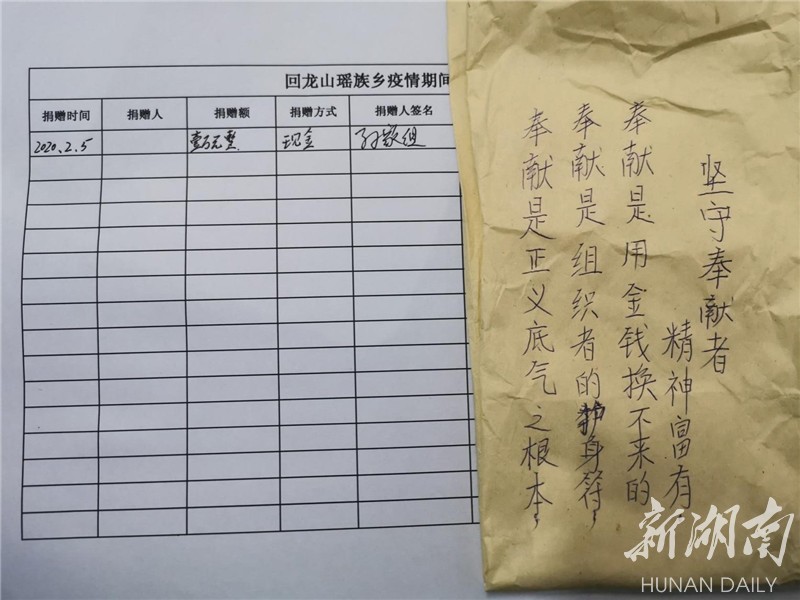 回龙山瑶族乡疫情期间
捐赠时间 捐赠人 捐赠额 捐赠方式 捐赠人签名
2020.2.5 壹万元整 现金
坚守奉献者
精神富有
奉献是用金钱换不来的
奉献是组织者的护身符
奉献是正义底气之根本
新湖南
HUNAN DAILY